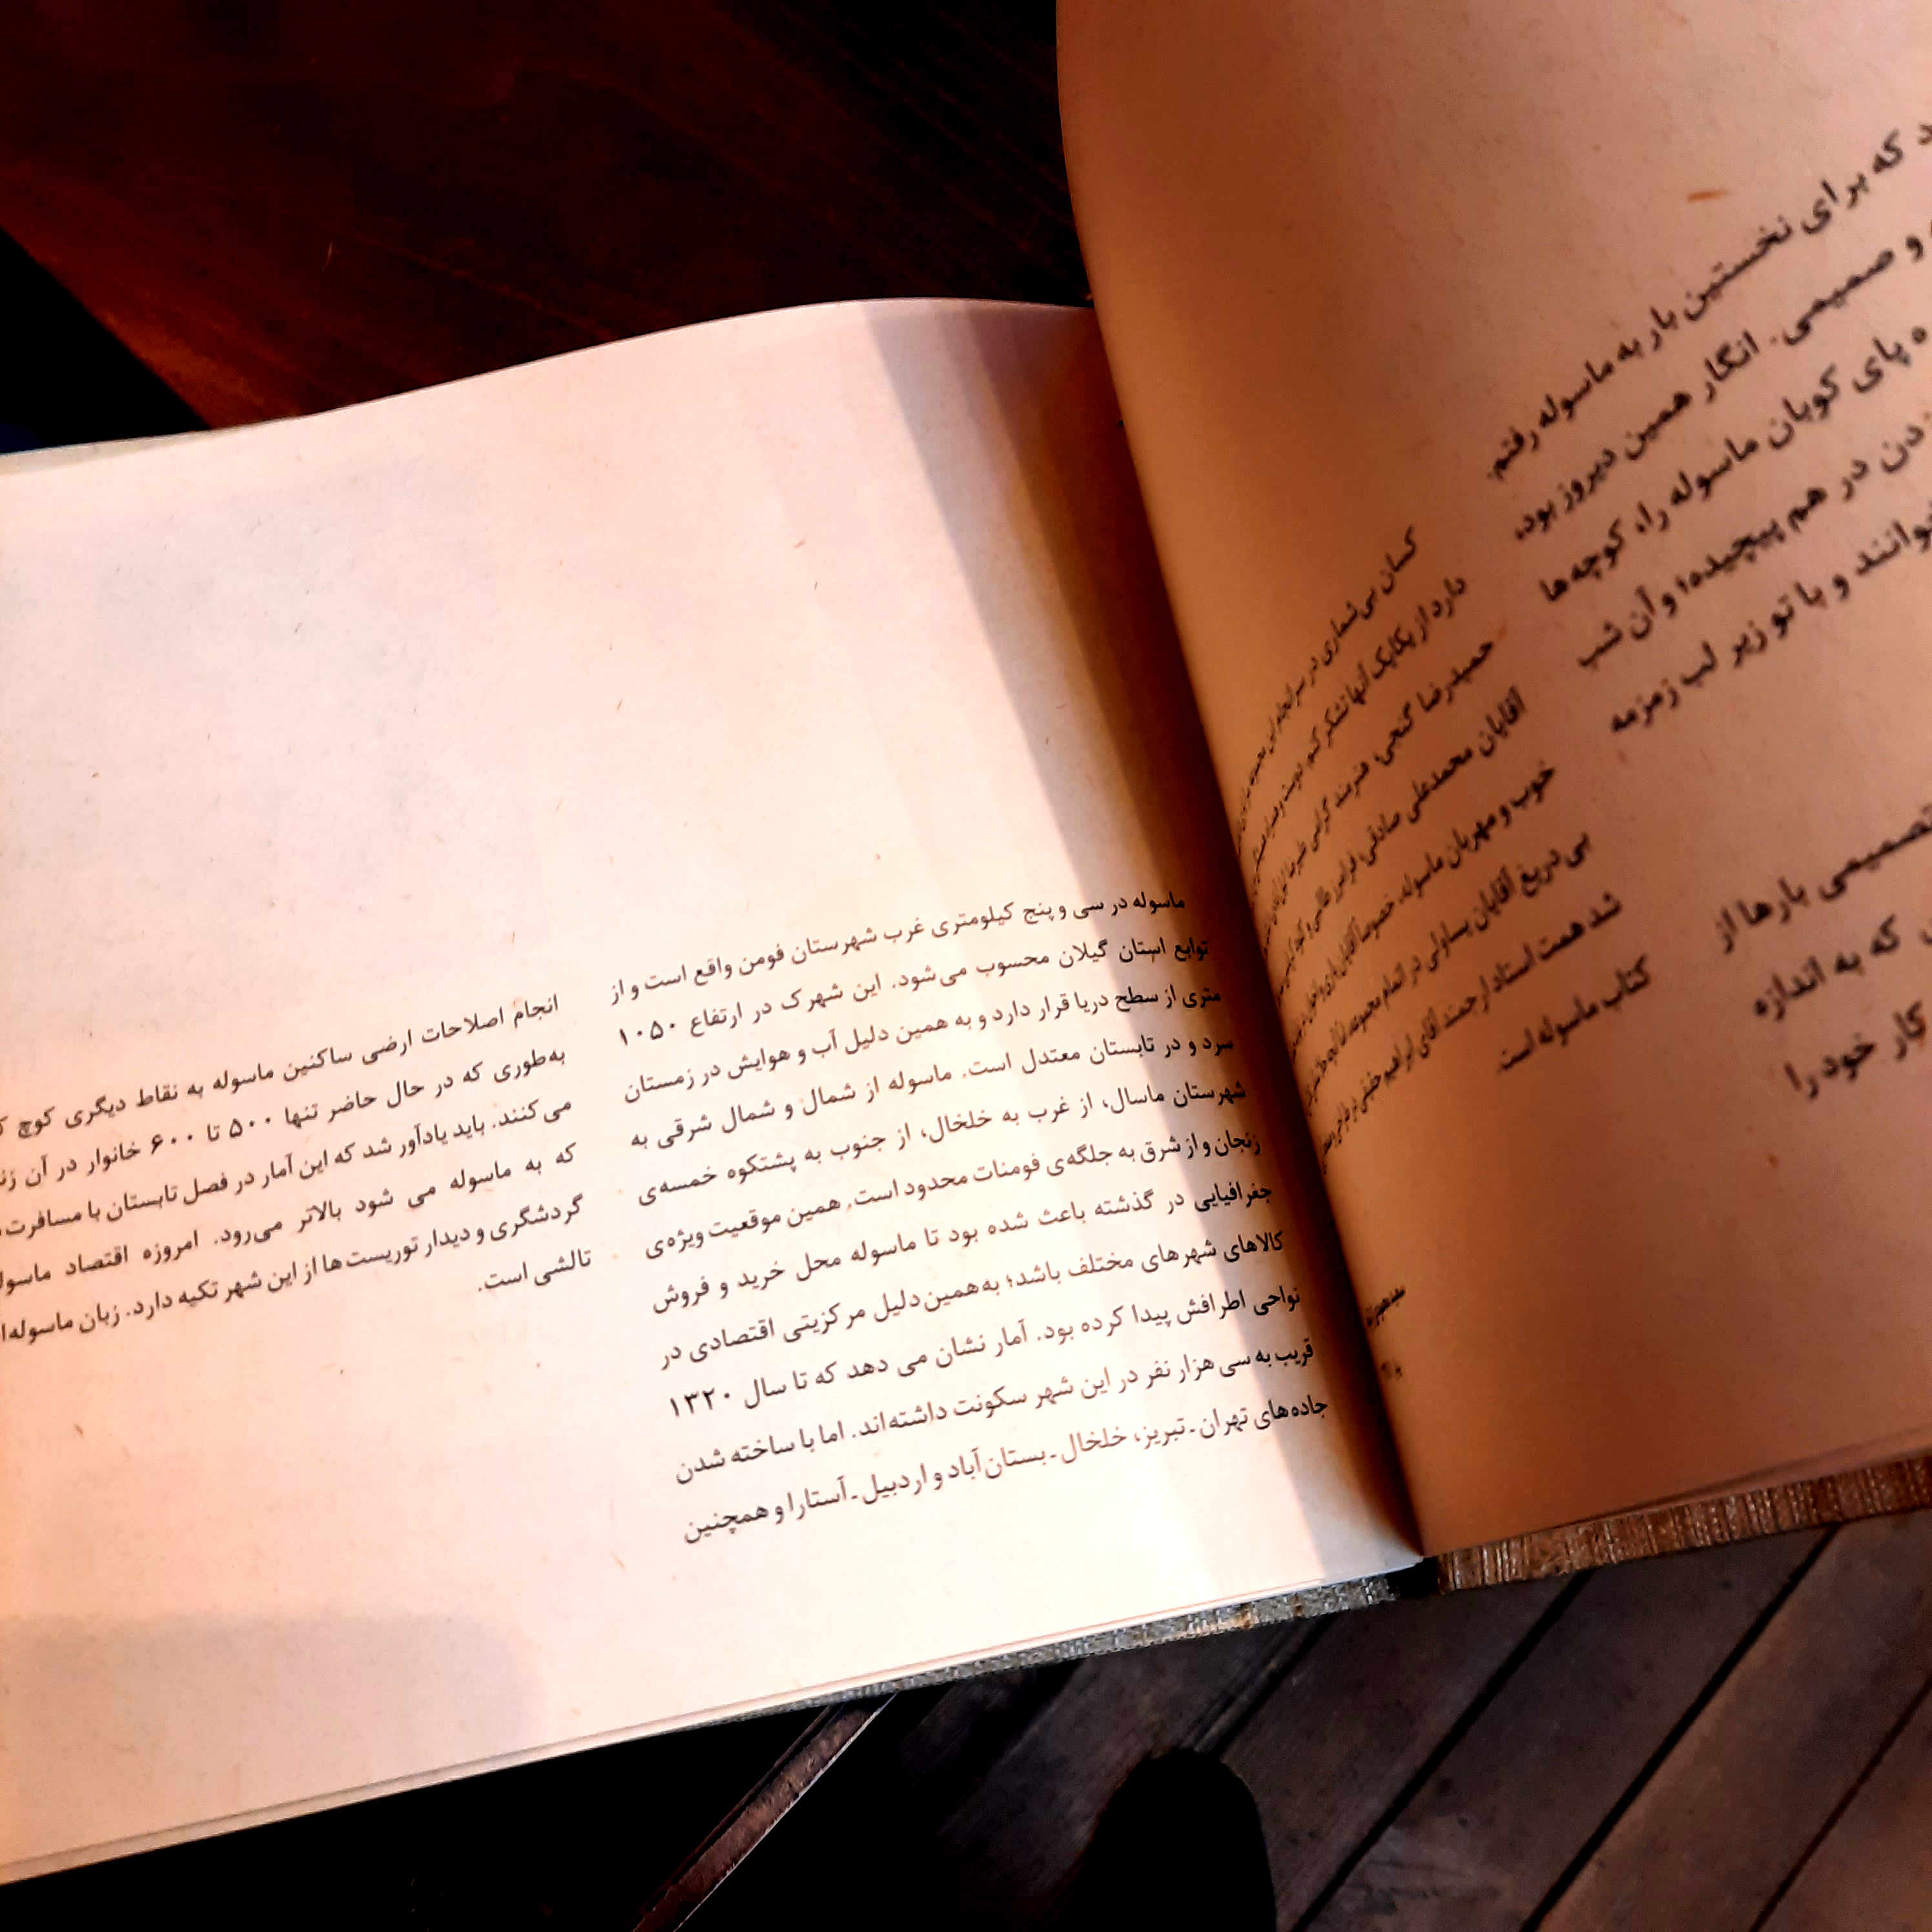 که برای نخستین بار به ماسوله رفتم.
و صمیمی. انگار همین دیروز بود،
پای کوبان ماسوله را، کوچه‌ها
در هم پیچیده؛ و آن شب
و با تو زیر لب زمزمه
تصمیمی بارها از
که به اندازه
کار خود را
کسان بی‌شماری در
دارد از یکایک آنها تشکر کنم.
حمیدرضا گنجی، هنرمند گرامی
آقایان محمدعلی صادقی،
خوب و مهربان ماسوله، خصوصا آقایان
بی دریغ آقایان یساولی در اتمام مجموعه
شد همت استاد ارجمند آقای ابراهیم حقیقی
کتاب ماسوله است.
ماسوله در سی و پنج کیلومتری غرب شهرستان فومن واقع است و از
توابع استان گیلان محسوب می‌شود. این شهرک در ارتفاع ۱۰۵۰
متری از سطح دریا قرار دارد و به همین دلیل آب و هوایش در زمستان
سرد و در تابستان معتدل است. ماسوله از شمال و شمال شرقی به
شهرستان ماسال، از غرب به خلخال، از جنوب به پشتکوه خمسه‌ی
زنجان و از شرق به جلگه‌ی فومنات محدود است. همین موقعیت ویژه‌ی
جغرافیایی در گذشته باعث شده بود تا ماسوله محل خرید و فروش
کالاهای شهرهای مختلف باشد؛ به‌همین دلیل مرکزیتی اقتصادی در
نواحی اطرافش پیدا کرده بود. آمار نشان می دهد که تا سال ۱۳۲۰
قریب به سی هزار نفر در این شهر سکونت داشته‌اند. اما با ساخته شدن
جاده‌های تهران ـ تبریز، خلخال ـ بستان‌آباد و اردبیل ـ آستارا و همچنین
انجام اصلاحات ارضی ساکنین ماسوله به نقاط دیگری کوچ
به‌طوری که در حال حاضر تنها ۵۰۰ تا ۶۰۰ خانوار در آن
می‌کنند. باید یادآور شد که این آمار در فصل تابستان با
که به ماسوله می شود بالاتر می‌رود. امروزه اقتصاد
گردشگری و دیدار توریست‌ها از این شهر تکیه دارد. زبان
تالشی است.